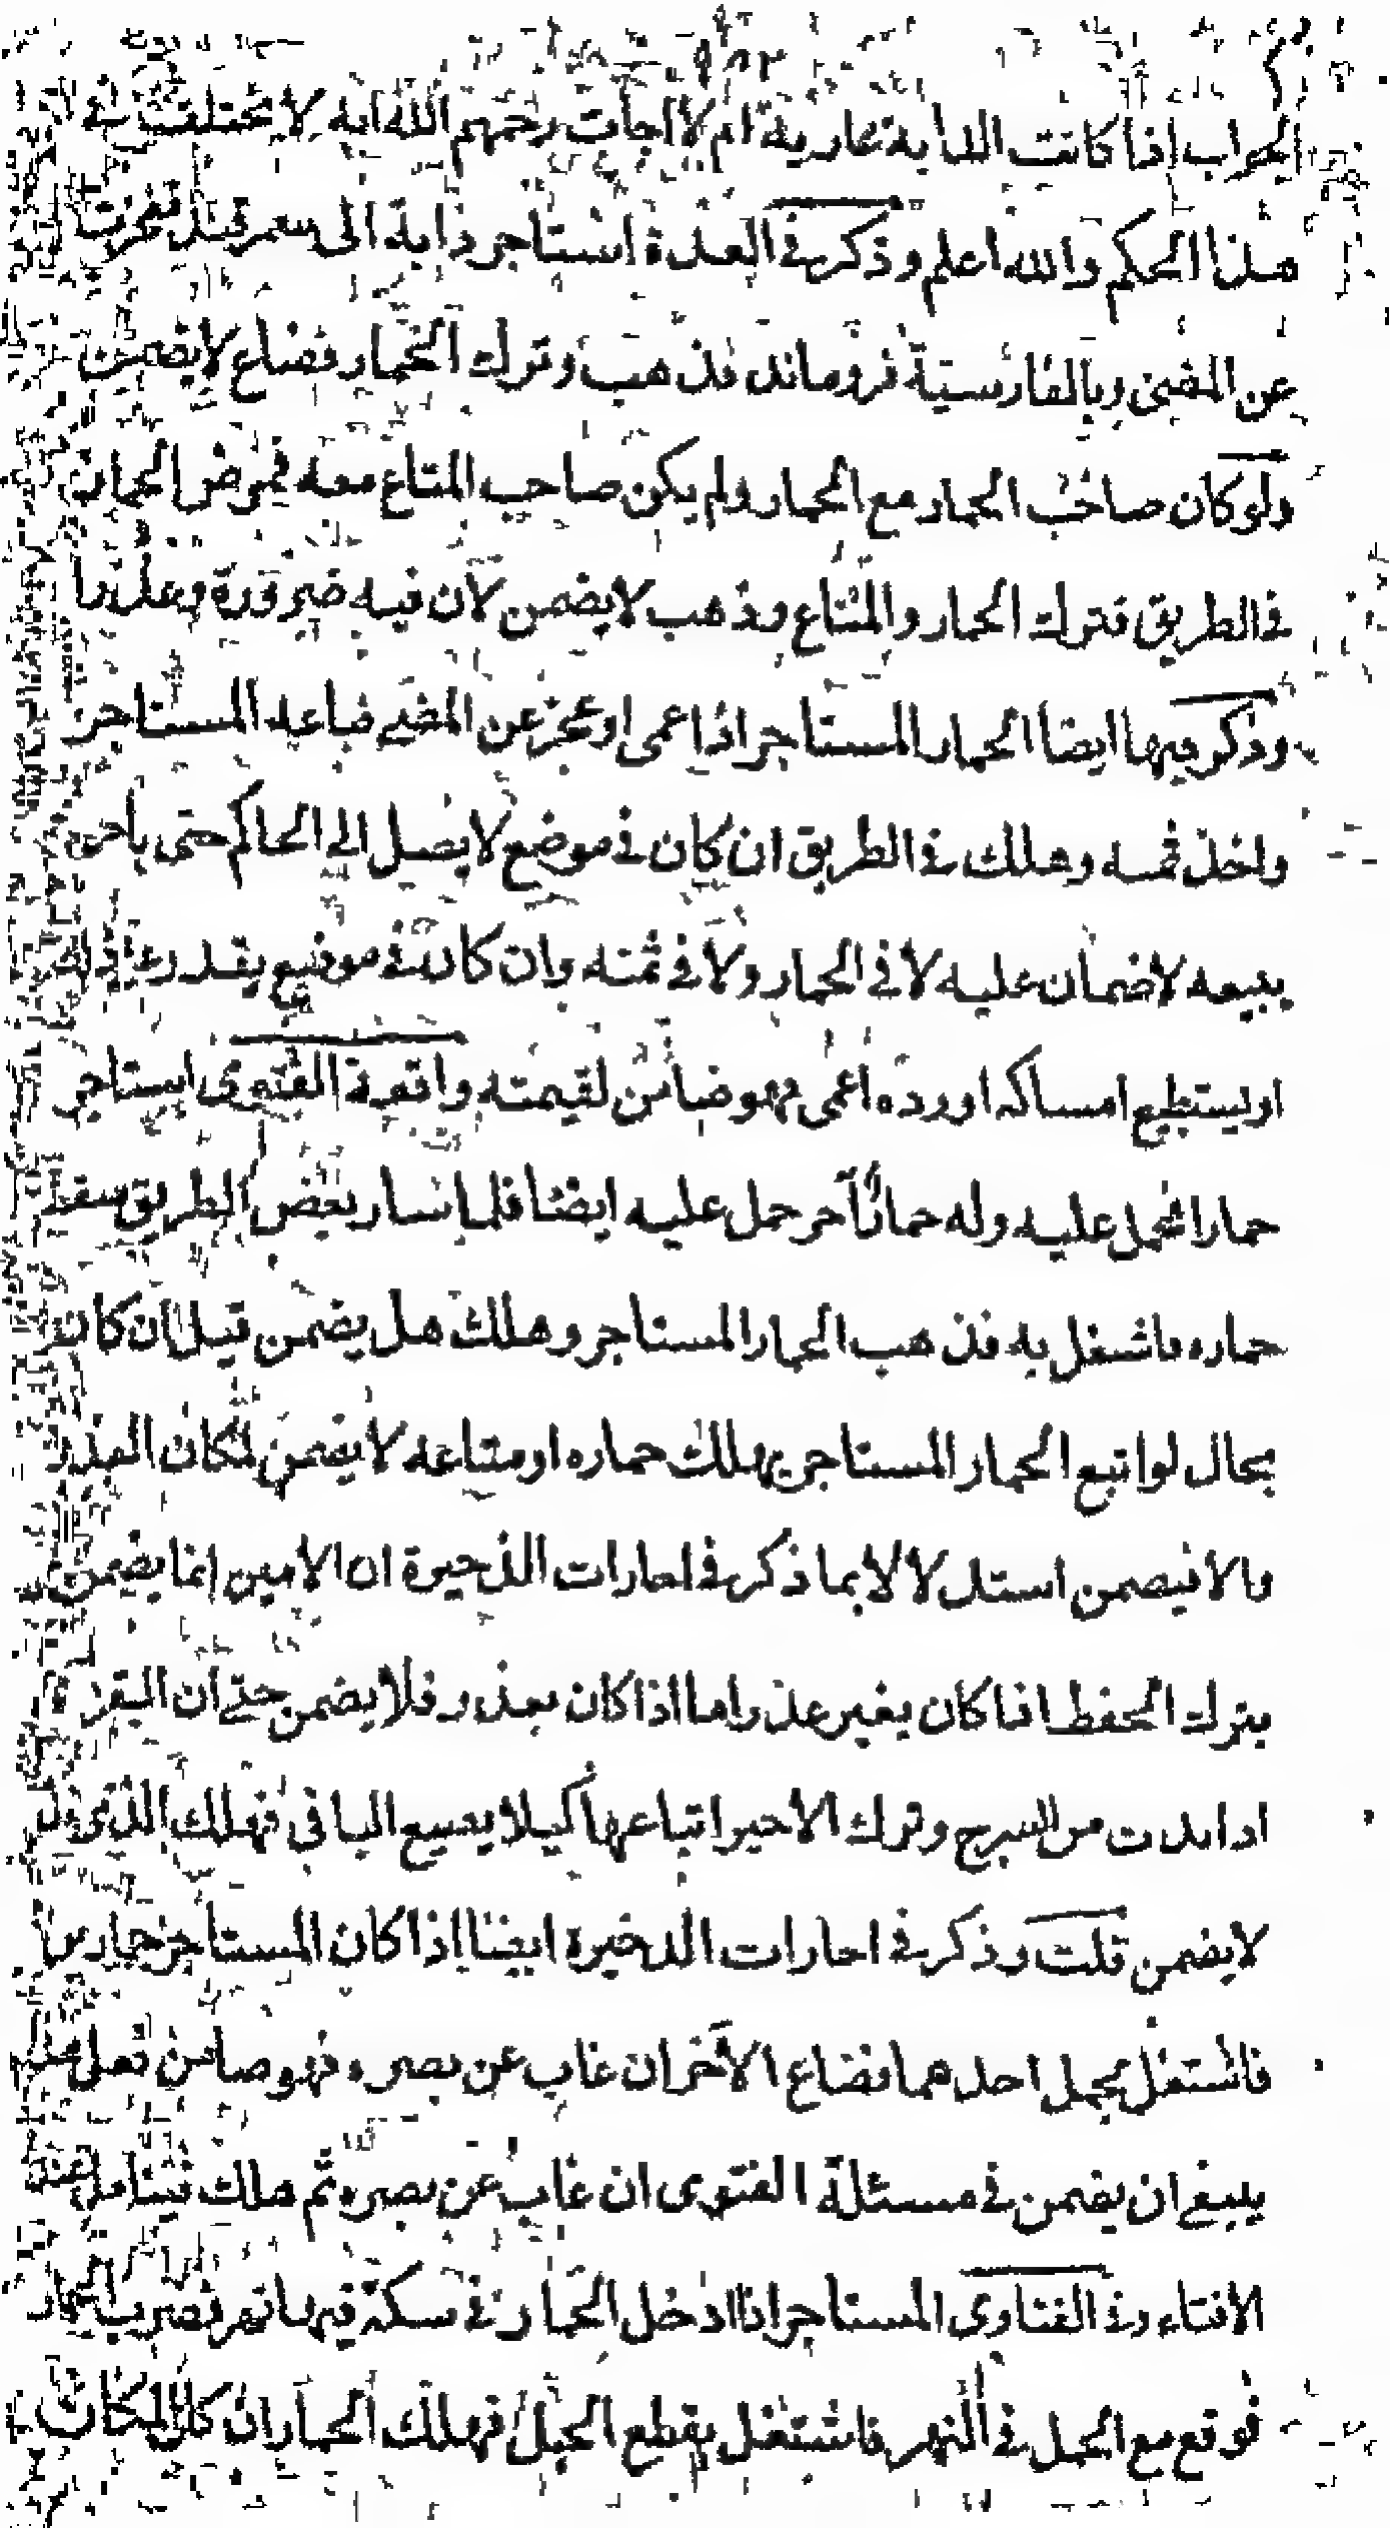 الجواب اذا كانت الدابة عارية ام لا اجابت رحمهم الله انه لا يختلف في
هذا الحكم والله اعلم وذكر في العدة استاجر دابة الى سمرقند فعجزت
عن المضي وبالفارسية فروماند فذهب وترك الحمار فضاع لا يضمن
ولو كان صاحب الحمار مع الحمار ولم يكن صاحب المتاع معه فمرض الحمار
في الطريق فترك الحمار والمتاع وذهب لا يضمن لان فيه ضرورة وعذرا
وذكر فيها ايضا الحمار المستاجر اذا عمى او عجز عن المضي فباعه المستاجر
واخذ ثمنه وهلك في الطريق ان كان في موضع لا يصل الى الحاكم حتى يامر
ببيعه لا ضمان عليه لا في الحمار ولا في ثمنه وان كان في موضع يقدر على ذلك
او يستطيع امساكه او رده اعمى فهو ضامن لقيمته واقعة الفتوى استاجر
حمارا فحمل عليه وله حمار آخر حمل عليه ايضا فلما سار بعض الطريق سقط
حماره فاشتغل به فذهب الحمار المستاجر وهلك هل يضمن قيل ان كان
بحال لو اتبع الحمار المستاجر يهلك حماره او متاعه لا يضمن لمكان العذر
والا فيضمن استدلالا بما ذكر في اجارات الذخيرة ان الامين انما يضمن
بترك الحفظ اذا كان بغير عذر اما اذا كان بعذر فلا يضمن حتى ان البقر
اذا ندت من السرح وترك الاجير اتباعها كيلا يضيع الباقي فهلك الذي ند
لا يضمن قلت وذكر في اجارات الذخيرة ايضا اذا كان المستاجر حمارين
فاشتغل بحمل احدهما فضاع الآخر ان غاب عن بصره فهو ضامن فعلى هذا
ينبغي ان يضمن في مسئلة الفتوى ان غاب عن بصره ثم هلك فيتامل عند
الافتاء وفي الفتاوى المستاجر اذا ادخل الحمار في سكة فيها نهر فضرب الحمار
فوقع مع الحمل في النهر فاشتغل بقطع الحبل فهلك الحمار ان كان المكان